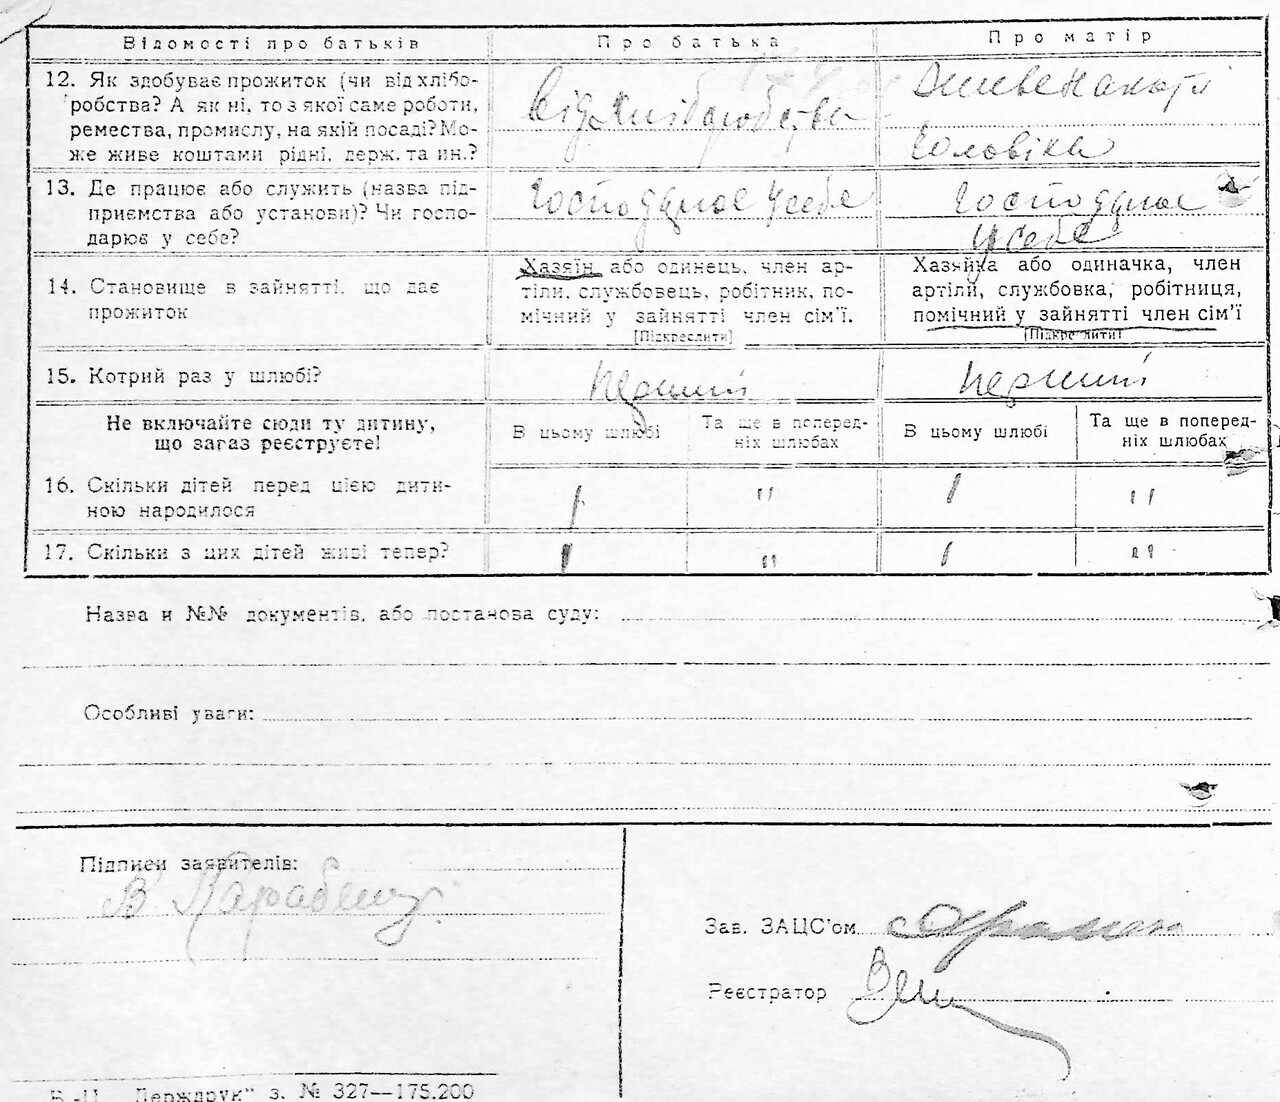 Відомості про батьків
Про батька
Про матір
12. Як здобуває прожиток (чи від хлібо-
робства? А як ні, то з якої саме роботи,
ремества, промислу, на якій посаді? Мо-
же живе коштами рідні, держ. та ин.?
від хліборобства
живе на кошти
чоловіка
13. Де працює або служить (назва під-
приємства або установи)? Чи госпо-
дарює у себе?
Господарює у себе
Господарює
у себе
14. Становище в зайнятті, що дає
прожиток
Хазяїн або одинець, член ар-
тіли, службовець, робітник, по-
мічний у зайнятті член сім'ї.
[Підкреслити]
Хазяйка або одиначка, член
артіли, службовка, робітниця,
помічний у зайнятті член сім'ї
[Підкреслити]
15. Котрий раз у шлюбі?
перший
перший
Не включайте сюди ту дитину,
що зараз реєструєте!
В цьому шлюбі
Та ще в поперед-
ніх шлюбах
В цьому шлюбі
Та ще в поперед-
ніх шлюбах
16. Скільки дітей перед цією дити-
ною народилося
1 " 1 "
17. Скільки з цих дітей живі тепер?
1 " 1 "
Назва и №№ документів, або постанова суду:
Особливі уваги:
Підписи заявителів:
Зав. ЗАЦС'ом
Реєстратор
Держдрук" з. № 327—175.200